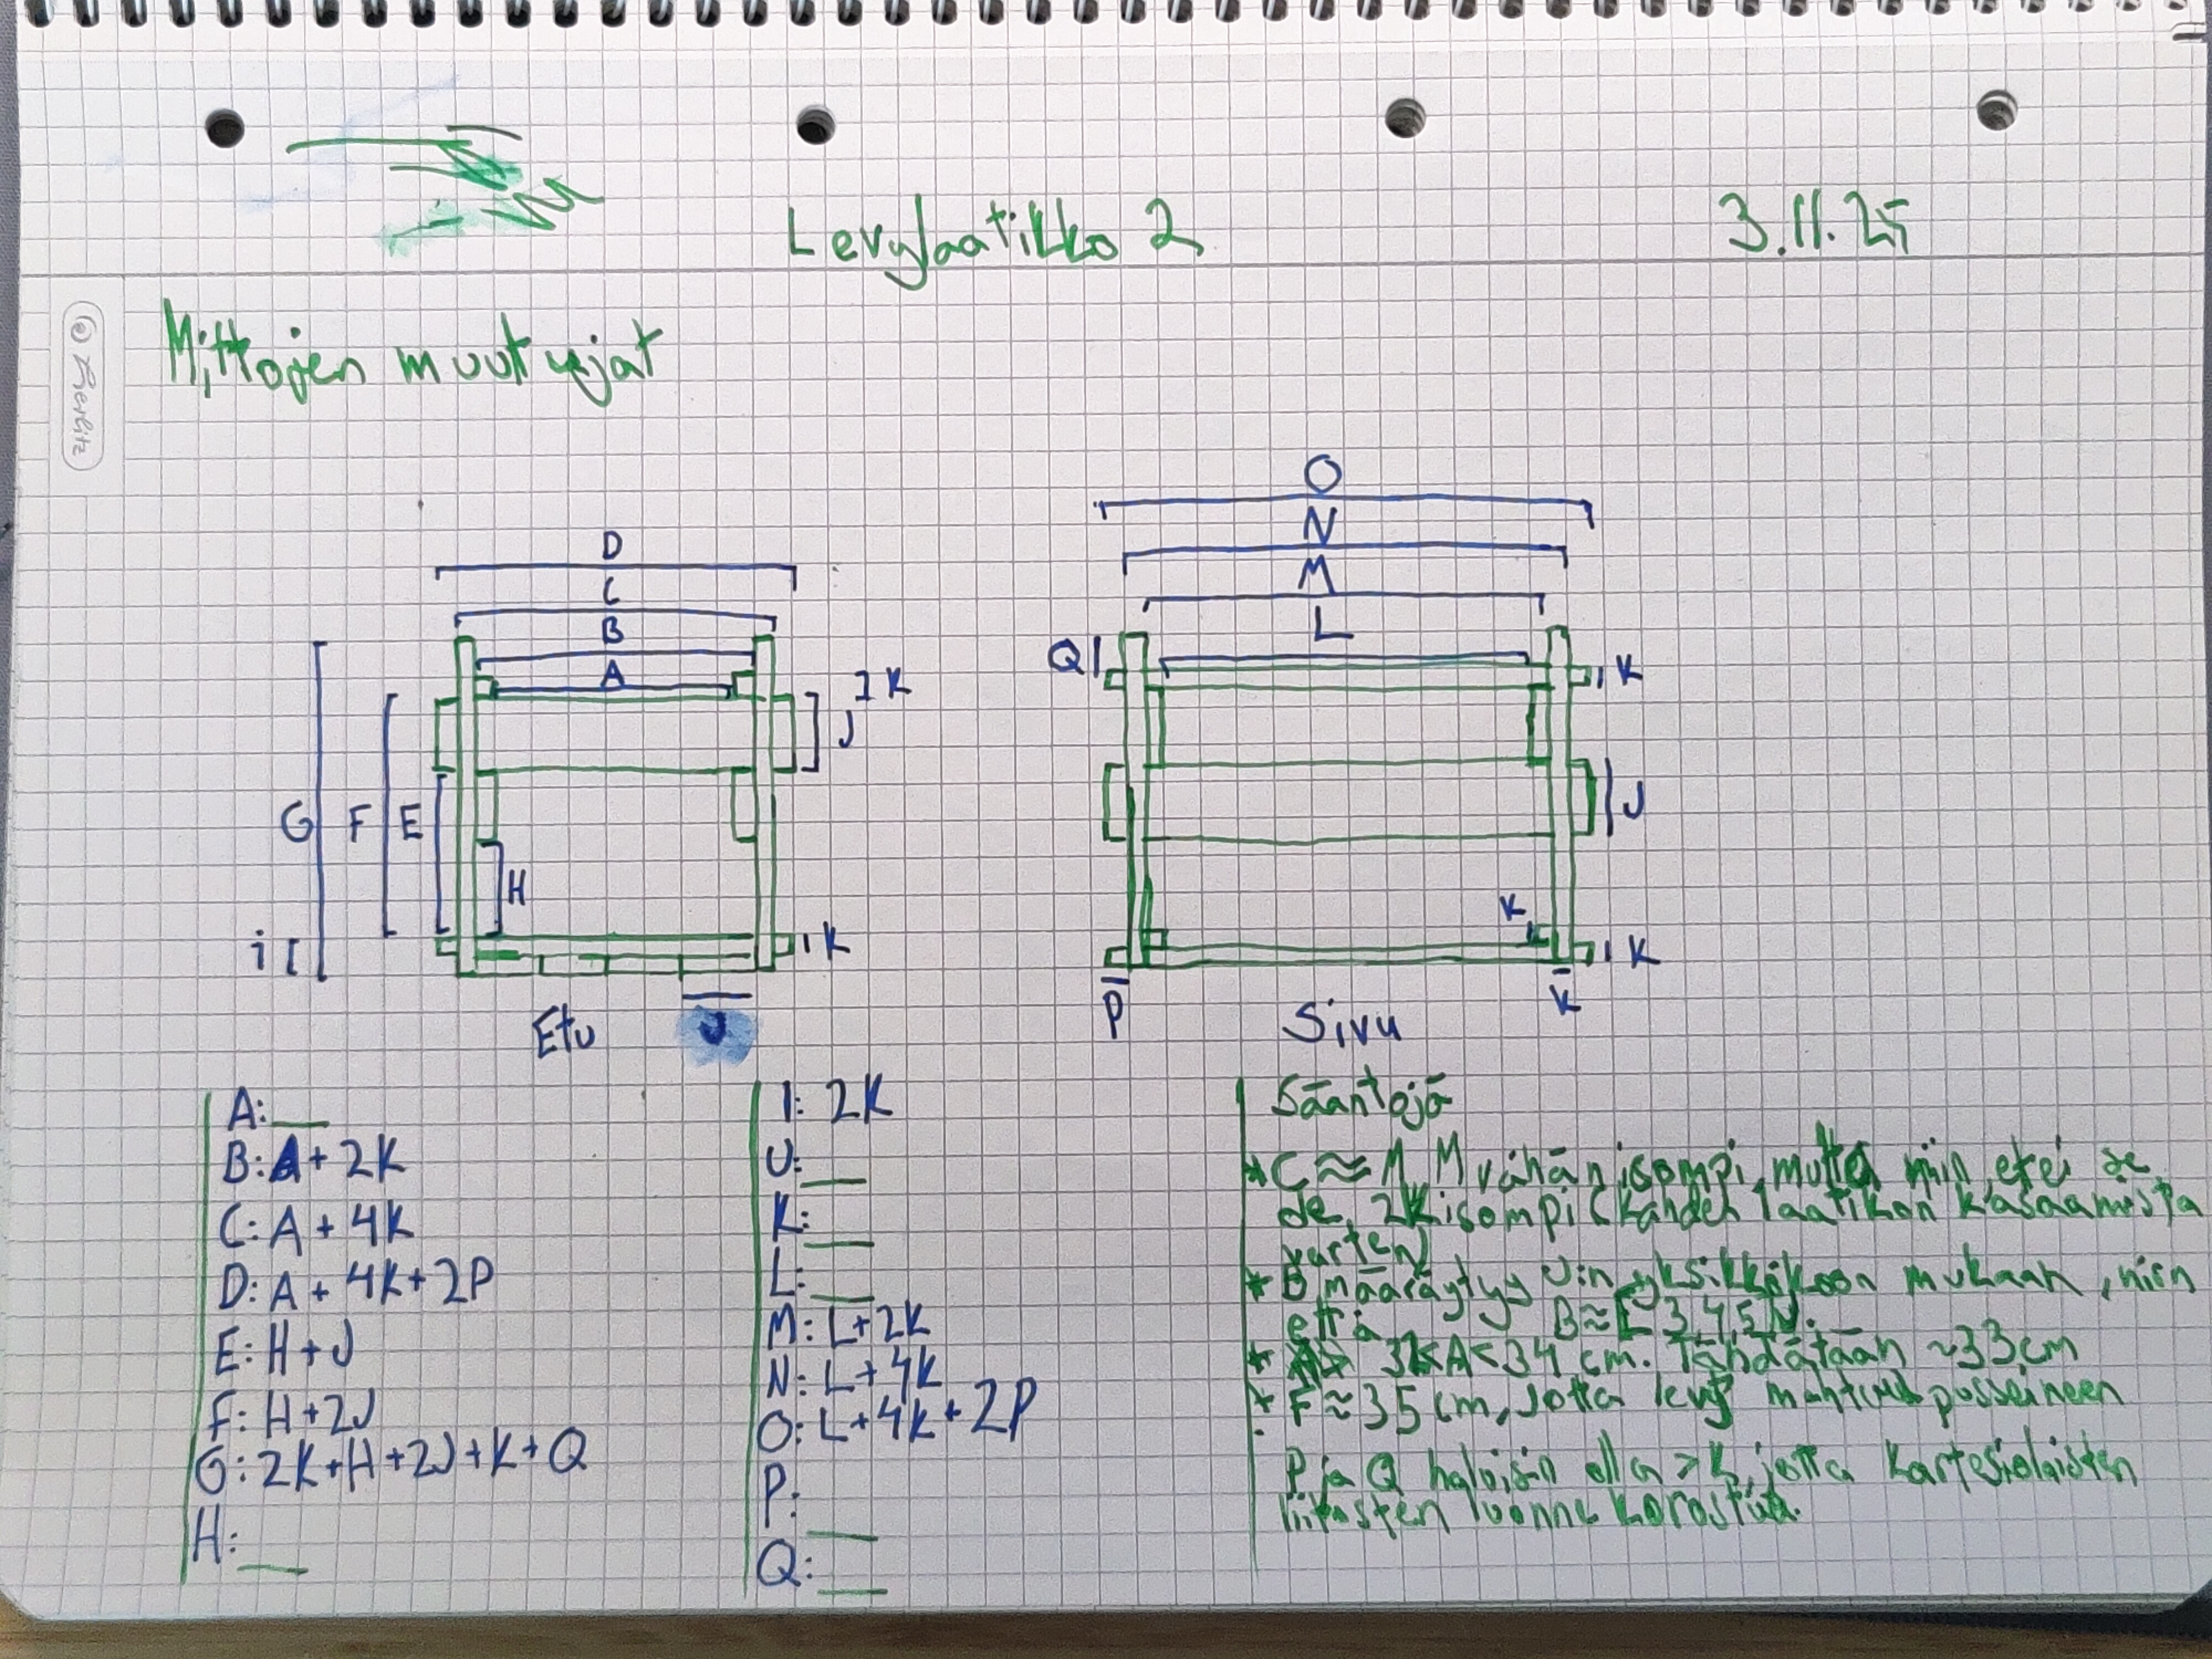 Levylaatikko 2
3.11.25
Herlitz
Mittojen muuttujat
O
N
M
L
D
C
B
A
Q
K
K
J
G
F
E
H
i
J
K
K
K
P
K
Etu
J
Sivu
A: __
B: A + 2K
C: A + 4K
D: A + 4K + 2P
E: H + J
F: H + 2J
G: 2K + H + 2J + K + Q
H: __
I: 2K
J: __
K: __
L: __
M: L + 2K
N: L + 4K
O: L + 4K + 2P
P: __
Q: __
Sääntöjä
* C ≈ M M vähän isompi, mutta niin, ettei se
2K isompi (kahden laatikon kasaamista
varten)
* B määräytyy J:n yksikkökoon mukaan, niin
että B ≈ [ 3, 4, 5 N.
* < A < 34 cm. Tähdätään ~33 cm
* F ≈ 35 cm, jotta levy mahtuu pusseineen
P ja Q haluisin olla > K, jotta kartesiolaisten
liitosten luonne korostuu.